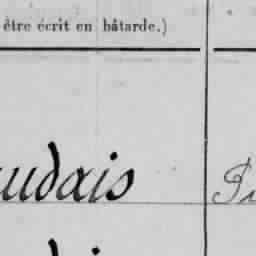 être écrit en bâtarde.)
udais